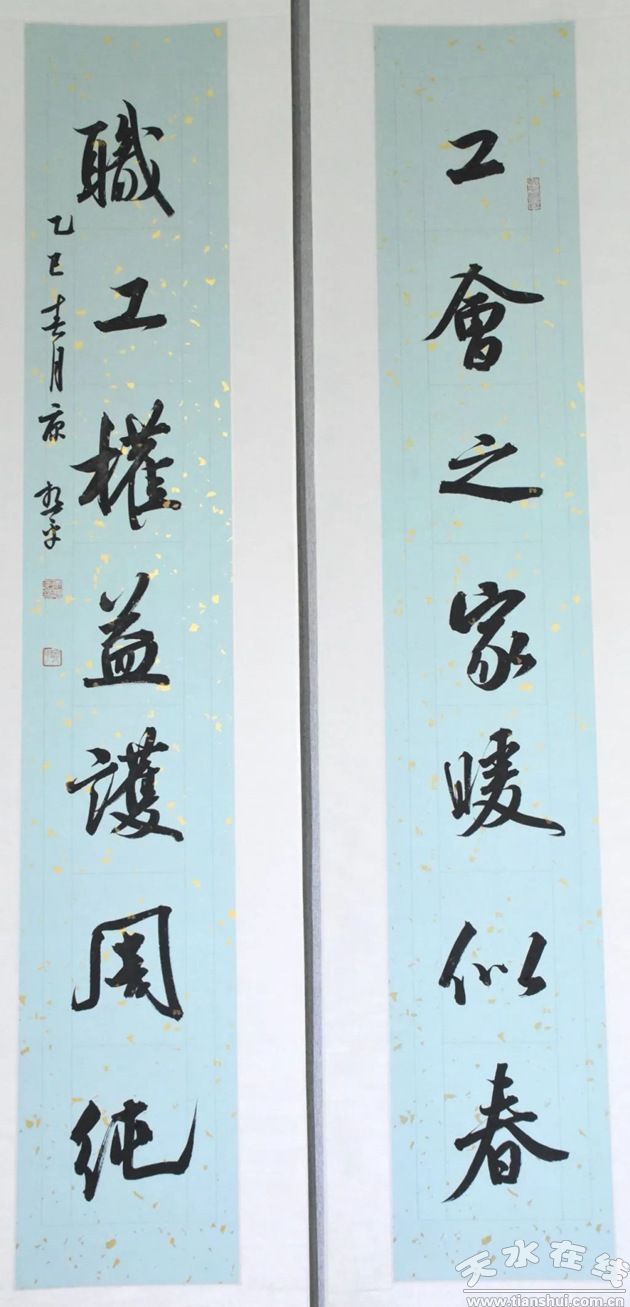 工會之家暖似春
職工權益護周純
乙巳春月康
天水在线
www.tianshui.com.cn